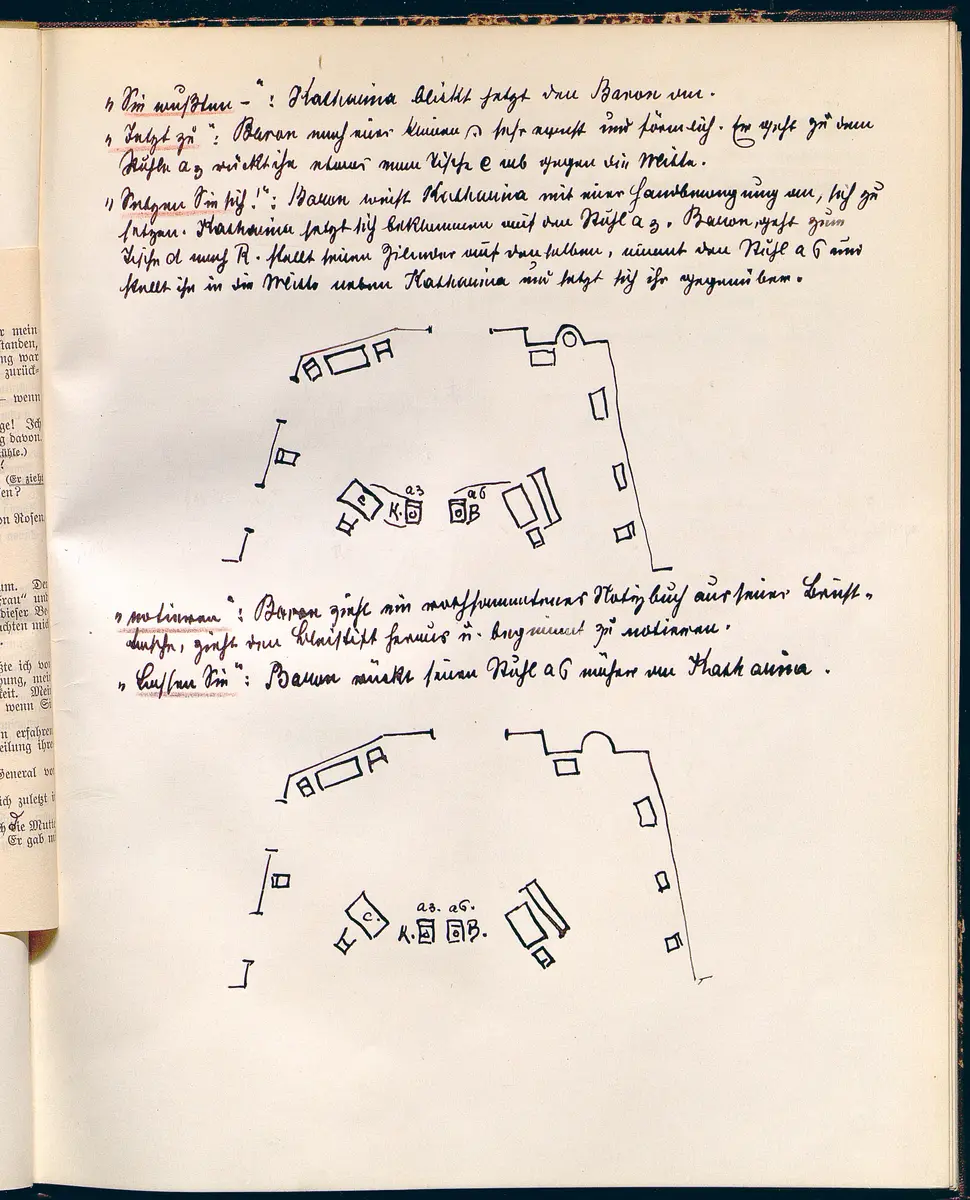 „Sie wußten –“: Katharina blickt jetzt den Baron an.
„Jetzt zu“: Baron nach einer kleinen sehr ernst und förmlich. Er geht zu dem
Stuhle a3 rückt ihn etwas vom Tische e ab gegen die Mitte.
„Setzen Sie sich!“: Baron weist Katharina mit einer Handbewegung an, sich zu
setzen. Katharina setzt sich beklommen auf den Stuhl a3. Baron geht zum
Tische d nach R. stellt seinen Zilinder auf denselben, nimmt den Stuhl a6 und
stellt ihn in die Mitte neben Katharina und setzt sich ihr gegenüber.
e
K.
a3
a6
B
„notieren“: Baron zieht ein rothsammtenes Notizbuch aus seiner Brust-
tasche, zieht den Bleistift heraus u. beginnt zu notieren.
„Lassen Sie“: Baron rückt seinen Stuhl a6 näher an Katharina.
e.
K.
a3.
a6.
B.
r mein
standen,
ng war
zurück-
– wenn
ge! Ich
g davon.
(Er zieht
en?
on Rosen
um. Der
Frau“ und
dieser Be
achten mich
ßte ich vo
ung, mei
keit. Mei
wenn Si
n erfahren
eilung ihre
General vo
ich zuletzt i
die Mutt
Er gab m